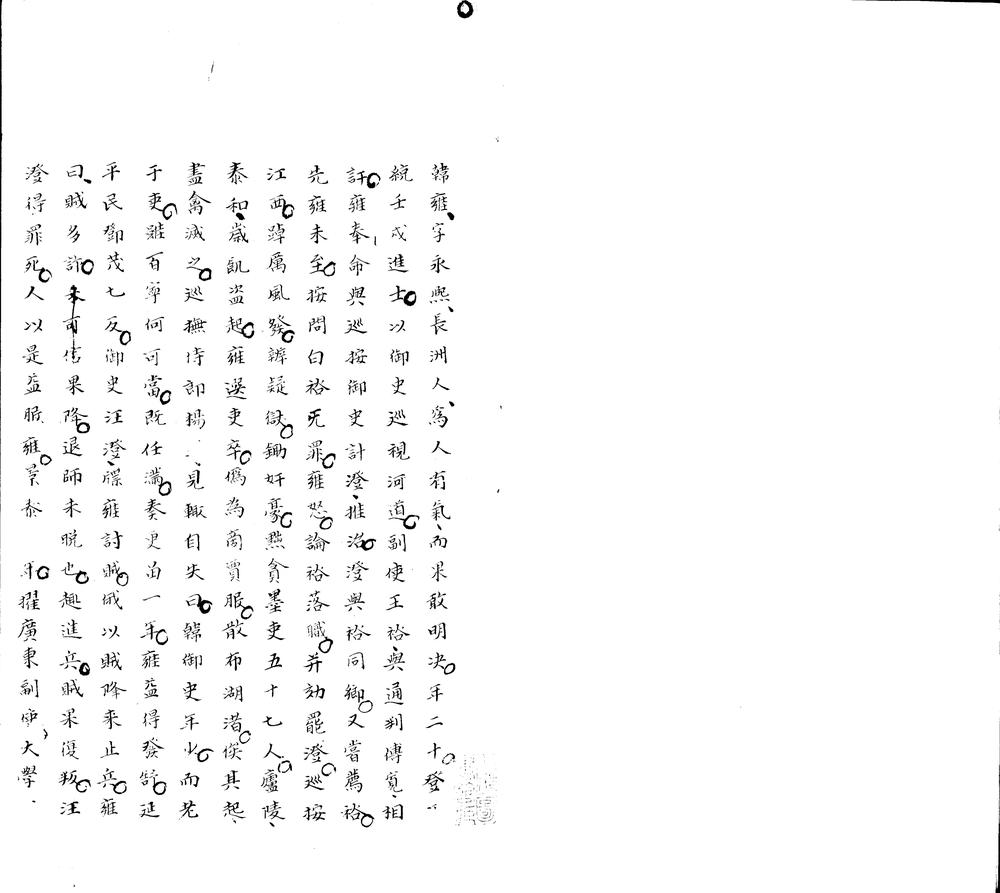 韓雍字永熈長洲人為人有氣而果敢明决年二十登
統壬戍進士以御史巡視河道副使王裕與通判傅寬相
訐雍奉命與巡按御史計澄推治澄與裕同鄉又嘗薦裕
先雍未至按問白裕旡罪雍怒論裕落職并劾罷澄巡按
江西踔厲風發辨疑獄鋤奸豪黜貪墨吏五十七人廬陵
泰和歲飢盜起雍選吏卒僞為商賈服散布湖渚俟其起
盡禽滅之巡撫侍郎楊見輒自失曰韓御史年少而老
于吏雖百寧何可當既任滿奏更留一年雍益得發舒延
平民鄧茂七反御史汪澄牒雍討賊俄以賊降來止兵雍
曰賊多詐未可信果降退師未晚也趣進兵賊果復叛汪
澄得罪死人以是益服雍景泰 年擢廣東副使大學